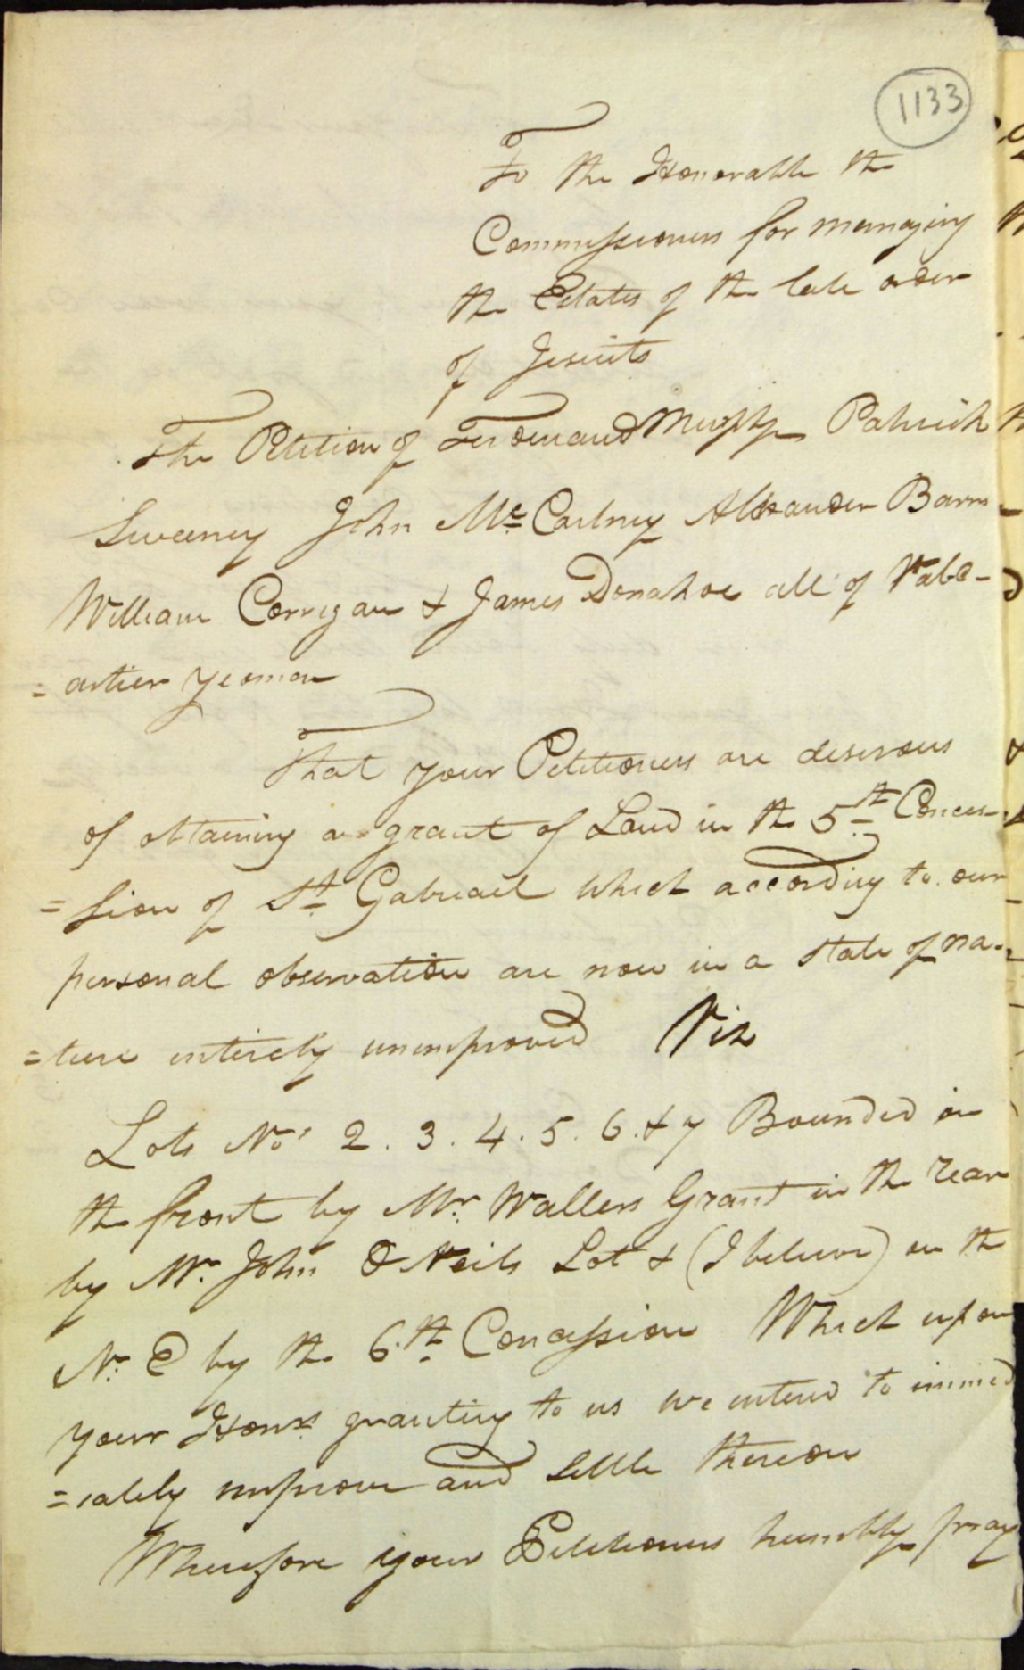 1133
To the Honorable the
Commissioners for managing
the Estates of the late order
of Jesuits
The Petition of Ferdenand Murphy Patrick
Sweeney John Mc Cartney Alexander Barns
William Corrigan & James Donahoe all of Valc-
=artier yeoman
That your Petitioners are desirous
of obtaining a grant of Land in the 5th Conces-
=sion of St Gabriail which according to our
personal observation are now in a state of na-
=ture intirely unimproved Viz
Lots No' 2. 3. 4. 5. 6. & 7 Bounded in
the front by Mr. Wallers Grant in the rear
by Mr. John O Neils Lot & (I believe) on the
N. E by the 6th Concession Which upon
your Honrs granting to us we intend to immed
=iately improve and settle thereon
Wherefore your Petitioners humbly pray